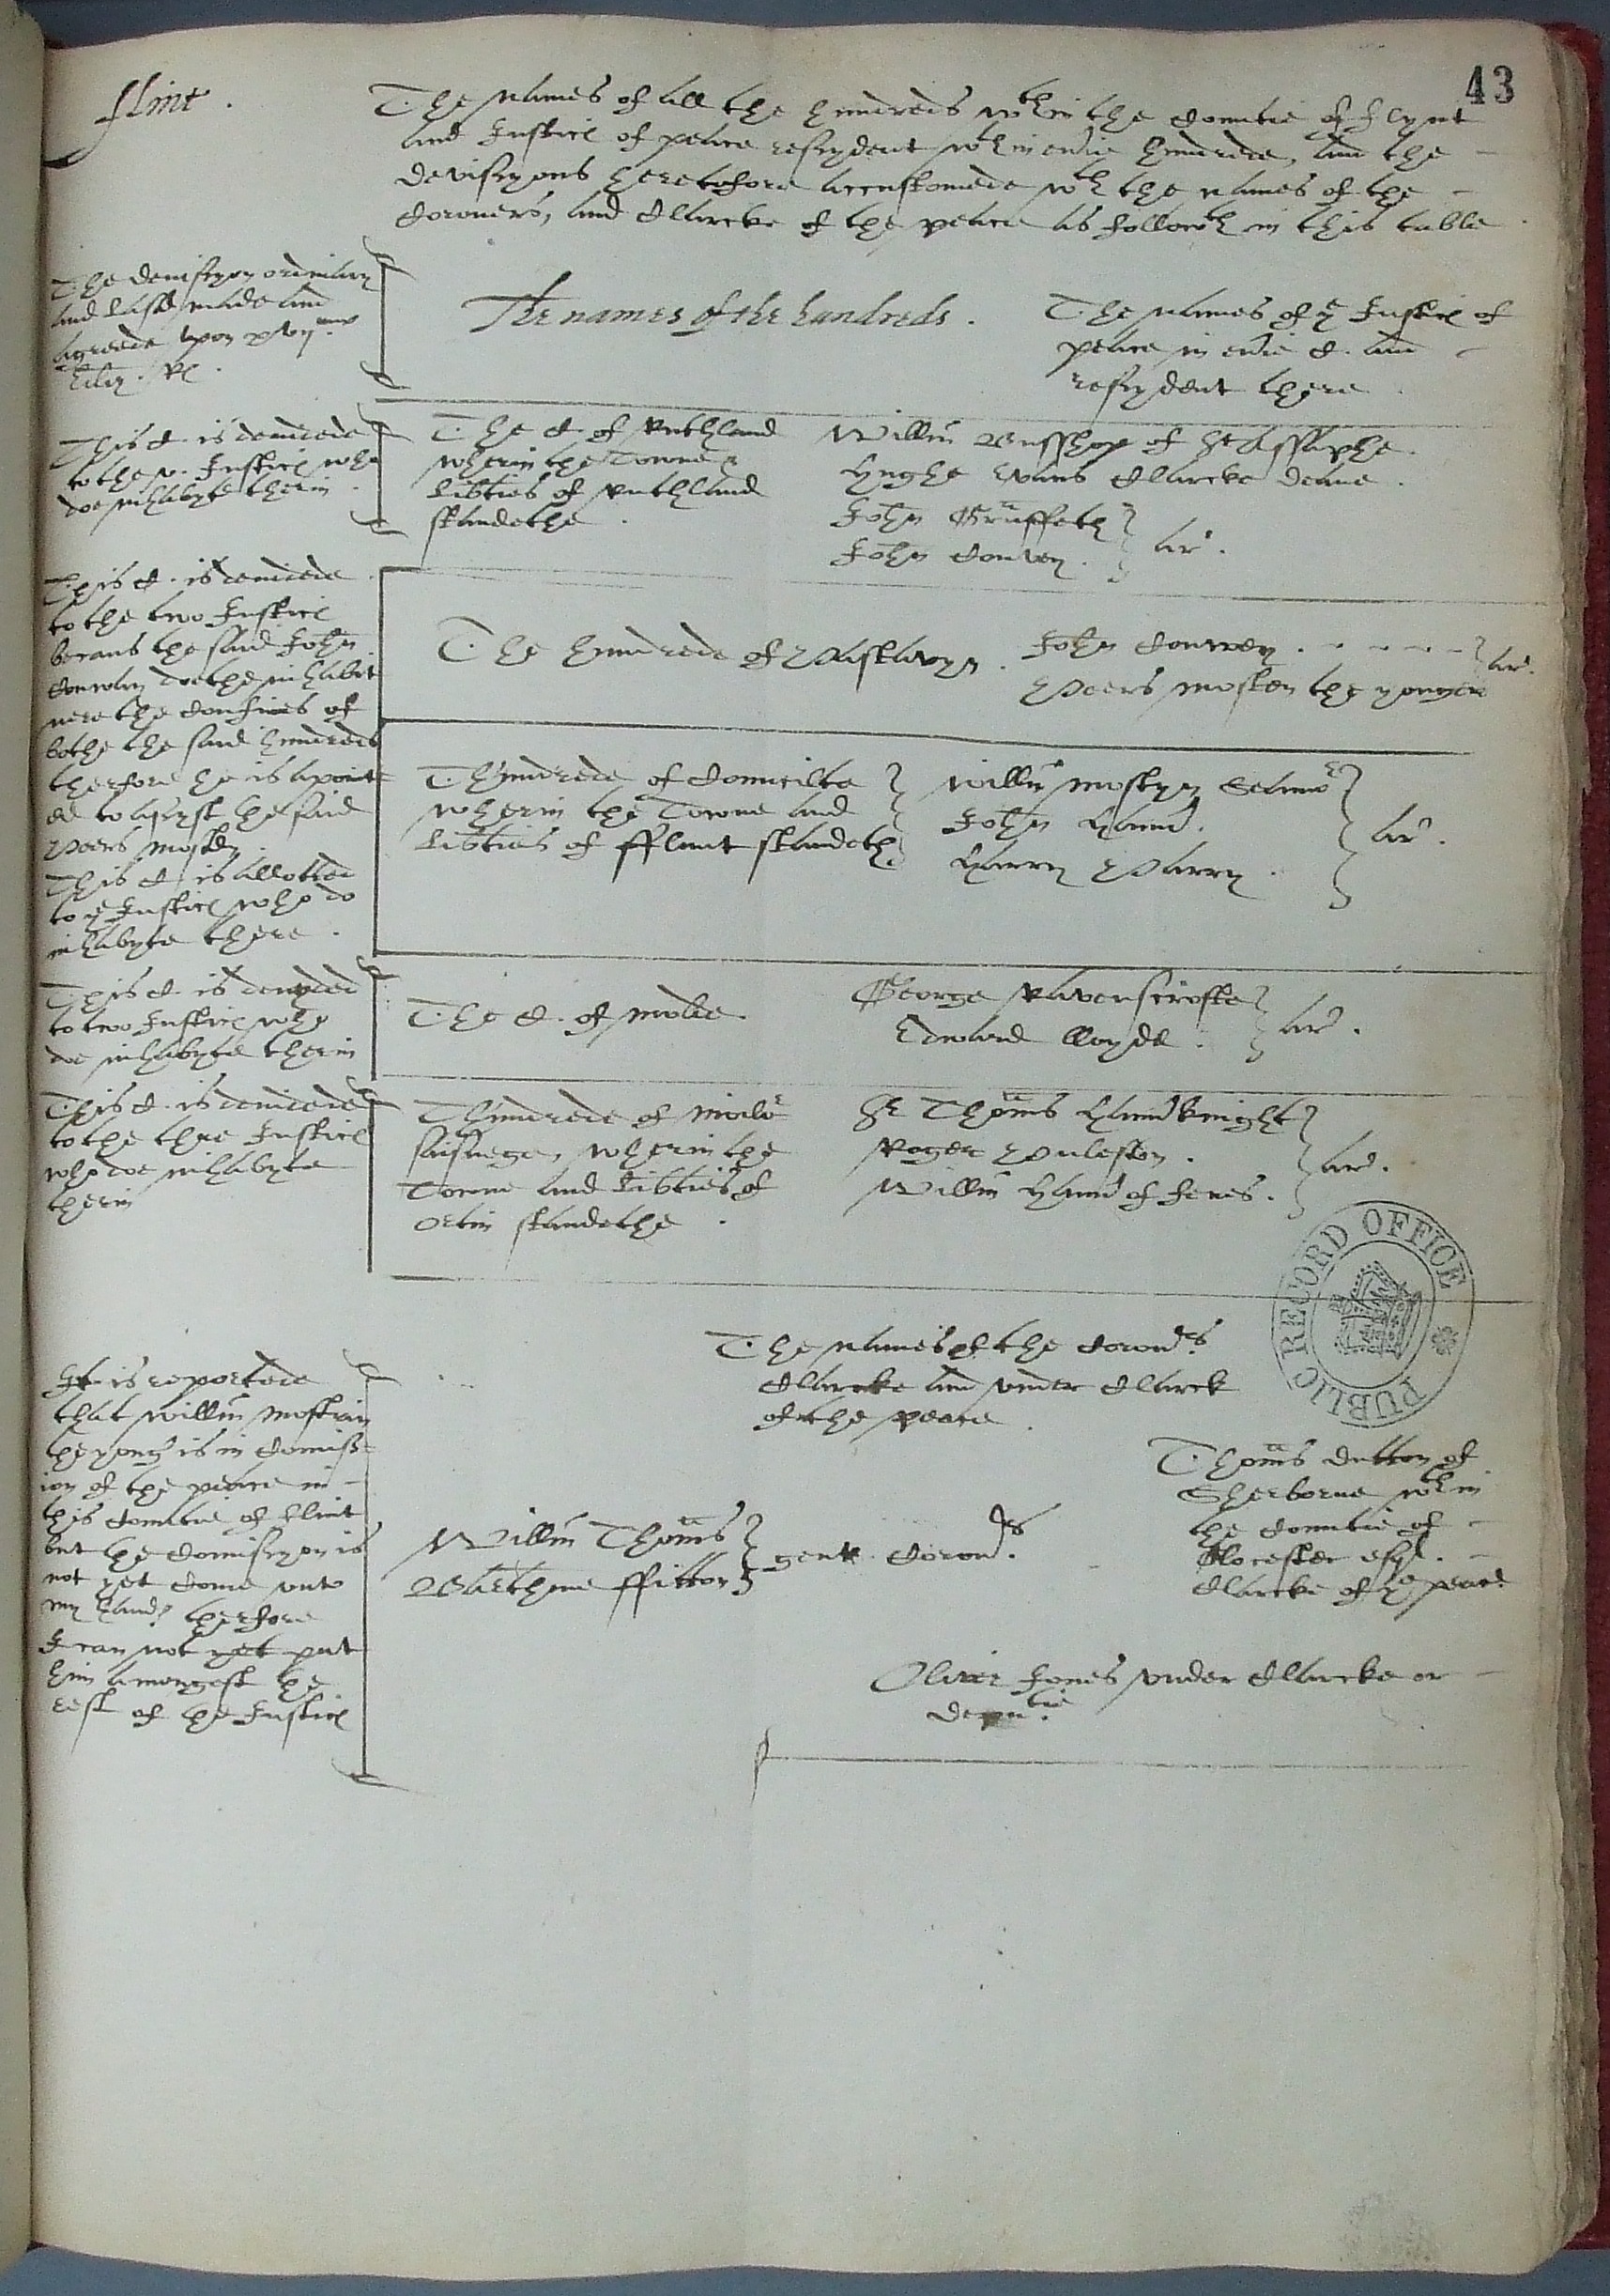 43
fflint .
The Names of all the hundreds wthin the Countie of Flynt
and Justicℓ of peace resydent wthin eu'ie hundrede, and the –
devisyons heretofore accustomede wth the names of the –
Coroners, and Clarcke of the peace as followth in this table
The devisyon ordinary
and laste made and
agreede upon
The names of the hundreds .
The Names of ye Justicℓ of
peace in eu'ie C. and –
resydent there .
This C. is devidede
to the v. Justicℓ who
doe inhabyte therin .
The C. of Ruthland
wherin the Towne &
lib'ties of Ruthland
standethe .
Willm Busshop of St Assaphe .
Hughe Evans Clarcke deane .
John Gruffeth
John Conwey . } ar' .
This C. is devidede .
to the two Justicℓ
becaus the said John
Conway dothe inhabit
nere the Confines of
bothe the said hundreds
therfore he is apoint=
ed to assyst the said
Peers Mosten
The hundrede of Prestatyn .
John Conwey . - - - -
Peers Mosten the yonger } ar' .
This C. is allotted
to ye Justicℓ who do
inhabyte there .
Thundrede of Counsilte
wherin the Towne and
lib'ties of fflint standeth.
Willm Mostyn Senio'r
John Hanm' .
Harry Parry . } ar' .
This C. is devyded
to two Justicℓ who
doe inhabyte therin
The C. of Molde .
George Ravenscrofte
Edward lloyde . } ar' .
This C. is devidede
to the thre Justicℓ
who doe inhabyte
therin
Thundrede of Mailo'r
saisnege, wherin the
Towne and lib'ties of
Ov'tin standethe .
Sr Thoms Hanm' knight
Roger Puleston .
Willm Hanm' of fenes . } ar' .
PUBLIC RECORD OFFICE
It is reportede
that Willm Mostyn
the yong' is in Comiss=
ion of the peace in –
this Countie of fflint
but the Comissyon is
not yet Come unto
my handℓ therfore
I can not yet put
him amongest the
rest of the Justicℓ
The names of the Coron'rs
Clarcke and under Clarck
of the peace .
Willm Thoms
Matthewe ffitton } gent . Coron'rs .
Thoms dutton of
Sherborne wthin
the Countie of –
Glocester esqr . –
Clarcke of ye peace
Oliver Jones under Clarcke or –
deputie .